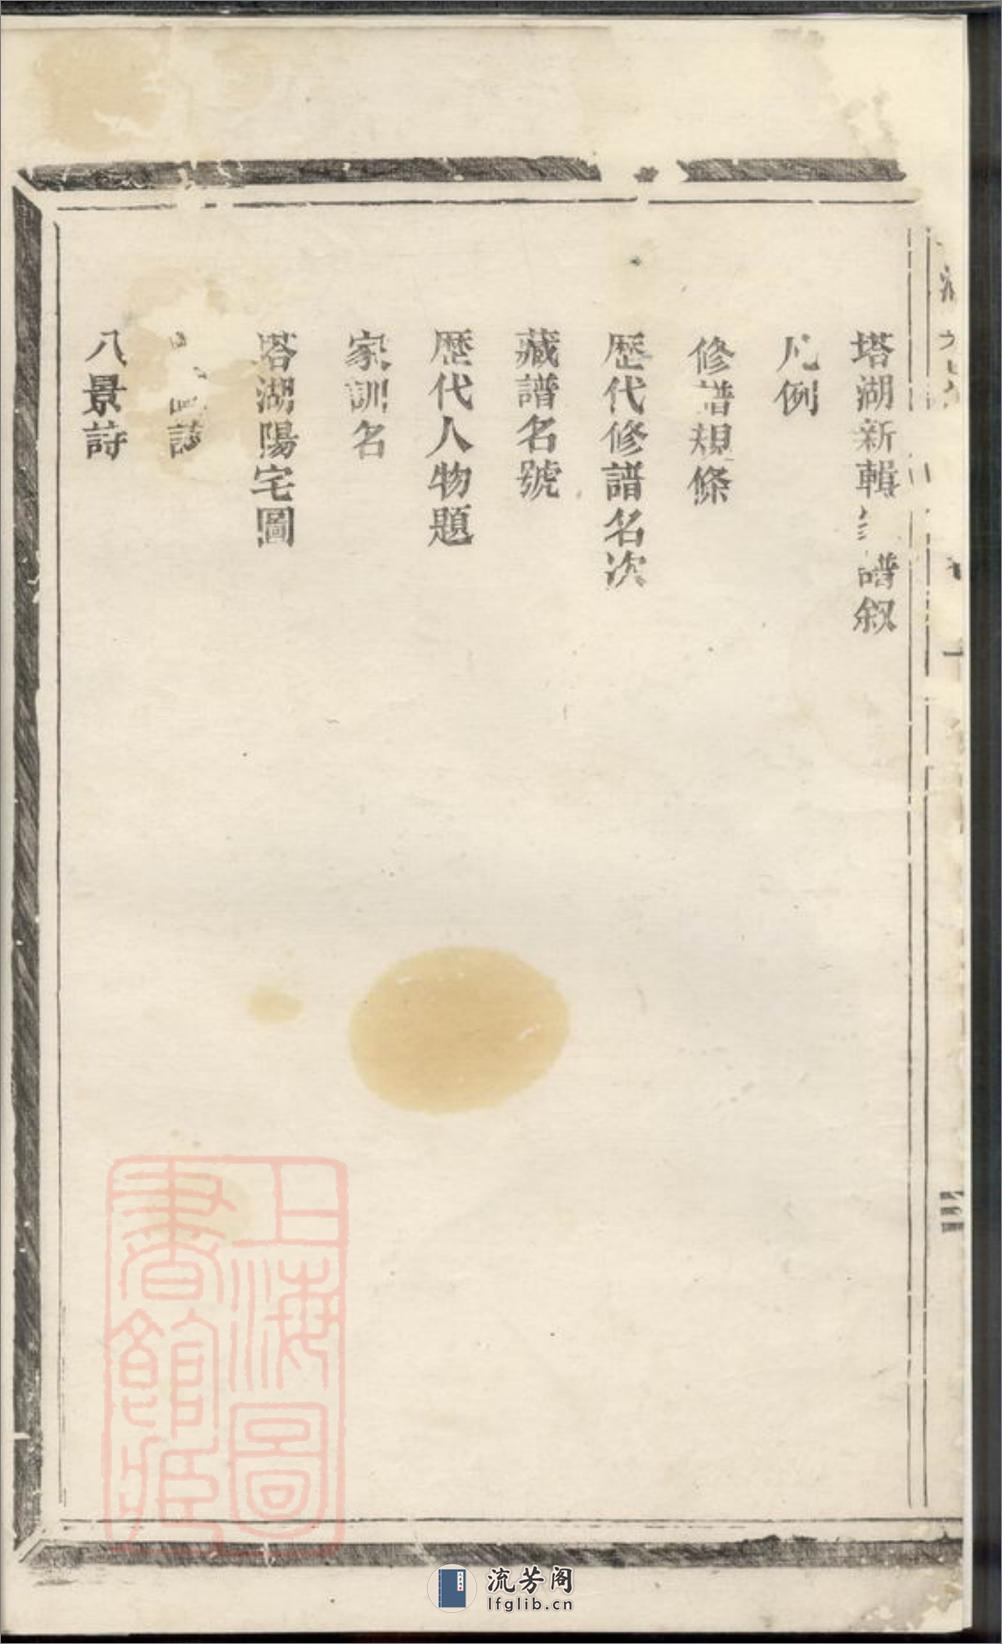 塔湖新輯宗譜叙
凡例
修譜規條
歷代修譜名次
藏譜名號
歷代人物題
家訓名
塔湖陽宅圖
詩
八景詩
上海圖
書館藏
流芳阁
lfglib.cn